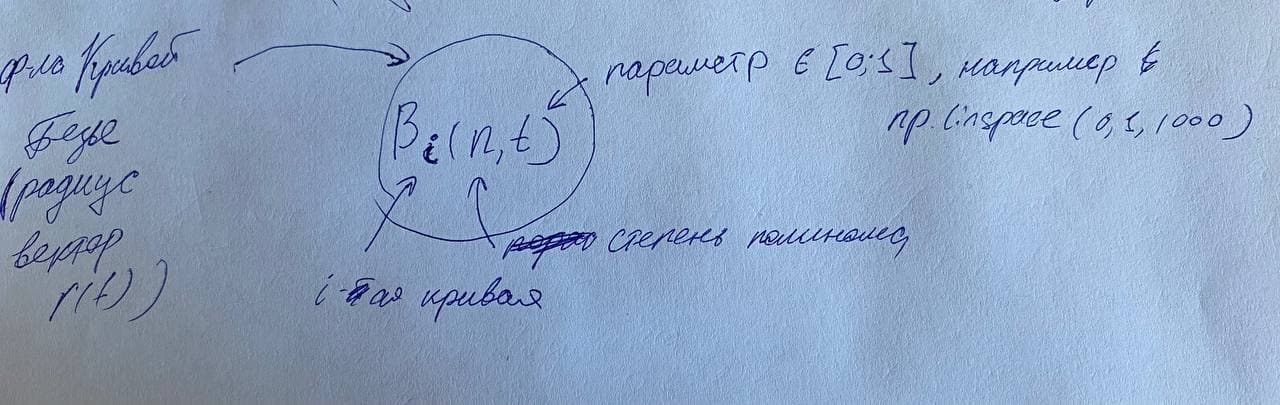 ф-ла Кривой
Безье
(радиус
вектор
r(t))
B_i(n,t)
параметр ∈ [0;1], например t
np.linspace(0,1,1000)
степень полинома
i-тая кривая